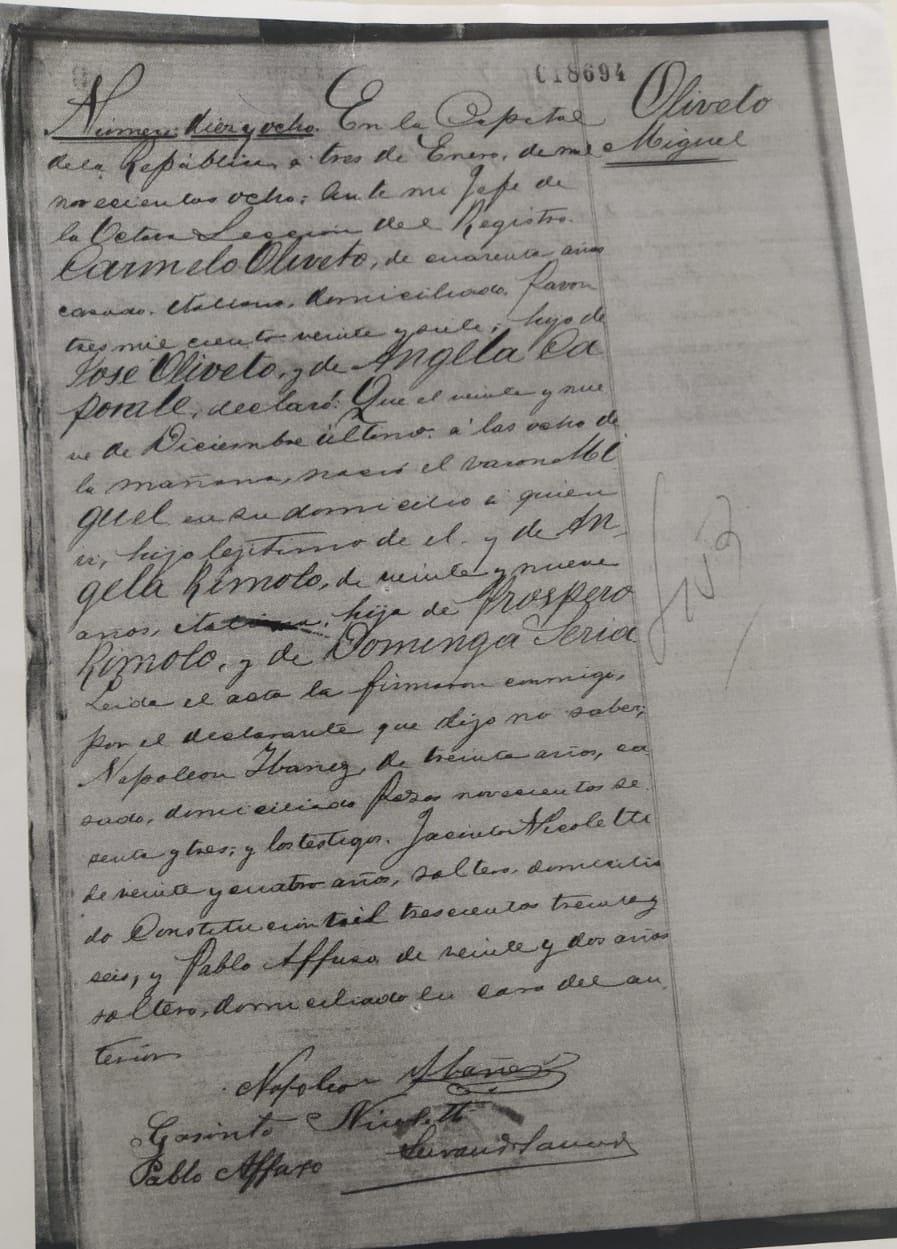 018694
Oliveto
Miguel
Número diez y ocho. En la Capital
de la República, a tres de Enero, de mil
novecientos ocho; Ante mi Jefe de
la Octava Sección del Registro.
Carmelo Oliveto, de cuarenta años
casado, italiano, domiciliado Pavon
tres mil ciento veinte y siete; hijo de
José Oliveto, y de Angela Ca
porale, declaró: Que el veinte y nue
ve de Diciembre último á las ocho de
la mañana, nació el varon Mi
guel en su domicilio á quien
vi, hijo legítimo de el y de An-
gela Rimolo, de veinte y nueve
años, italiana, hija de Prospero
Rimolo, y de Dominga Seria
Leida el acta la firmaron conmigo,
por el declarante que dijo no saber;
Napoleon Ybañez, de treinta años, ca
sado, domiciliado novecientos se
senta y tres; y los testigos. Jacinto Nicoletti
de veinte y cuatro años, soltero, domicilia
do Constitucion mil trescientos treinta y
seis, y Pablo Affuso de veinte y dos años
soltero, domiciliado en casa del an
terior
Napoleon Ybañez
Gasinto Nicoletti
Pablo Affuso